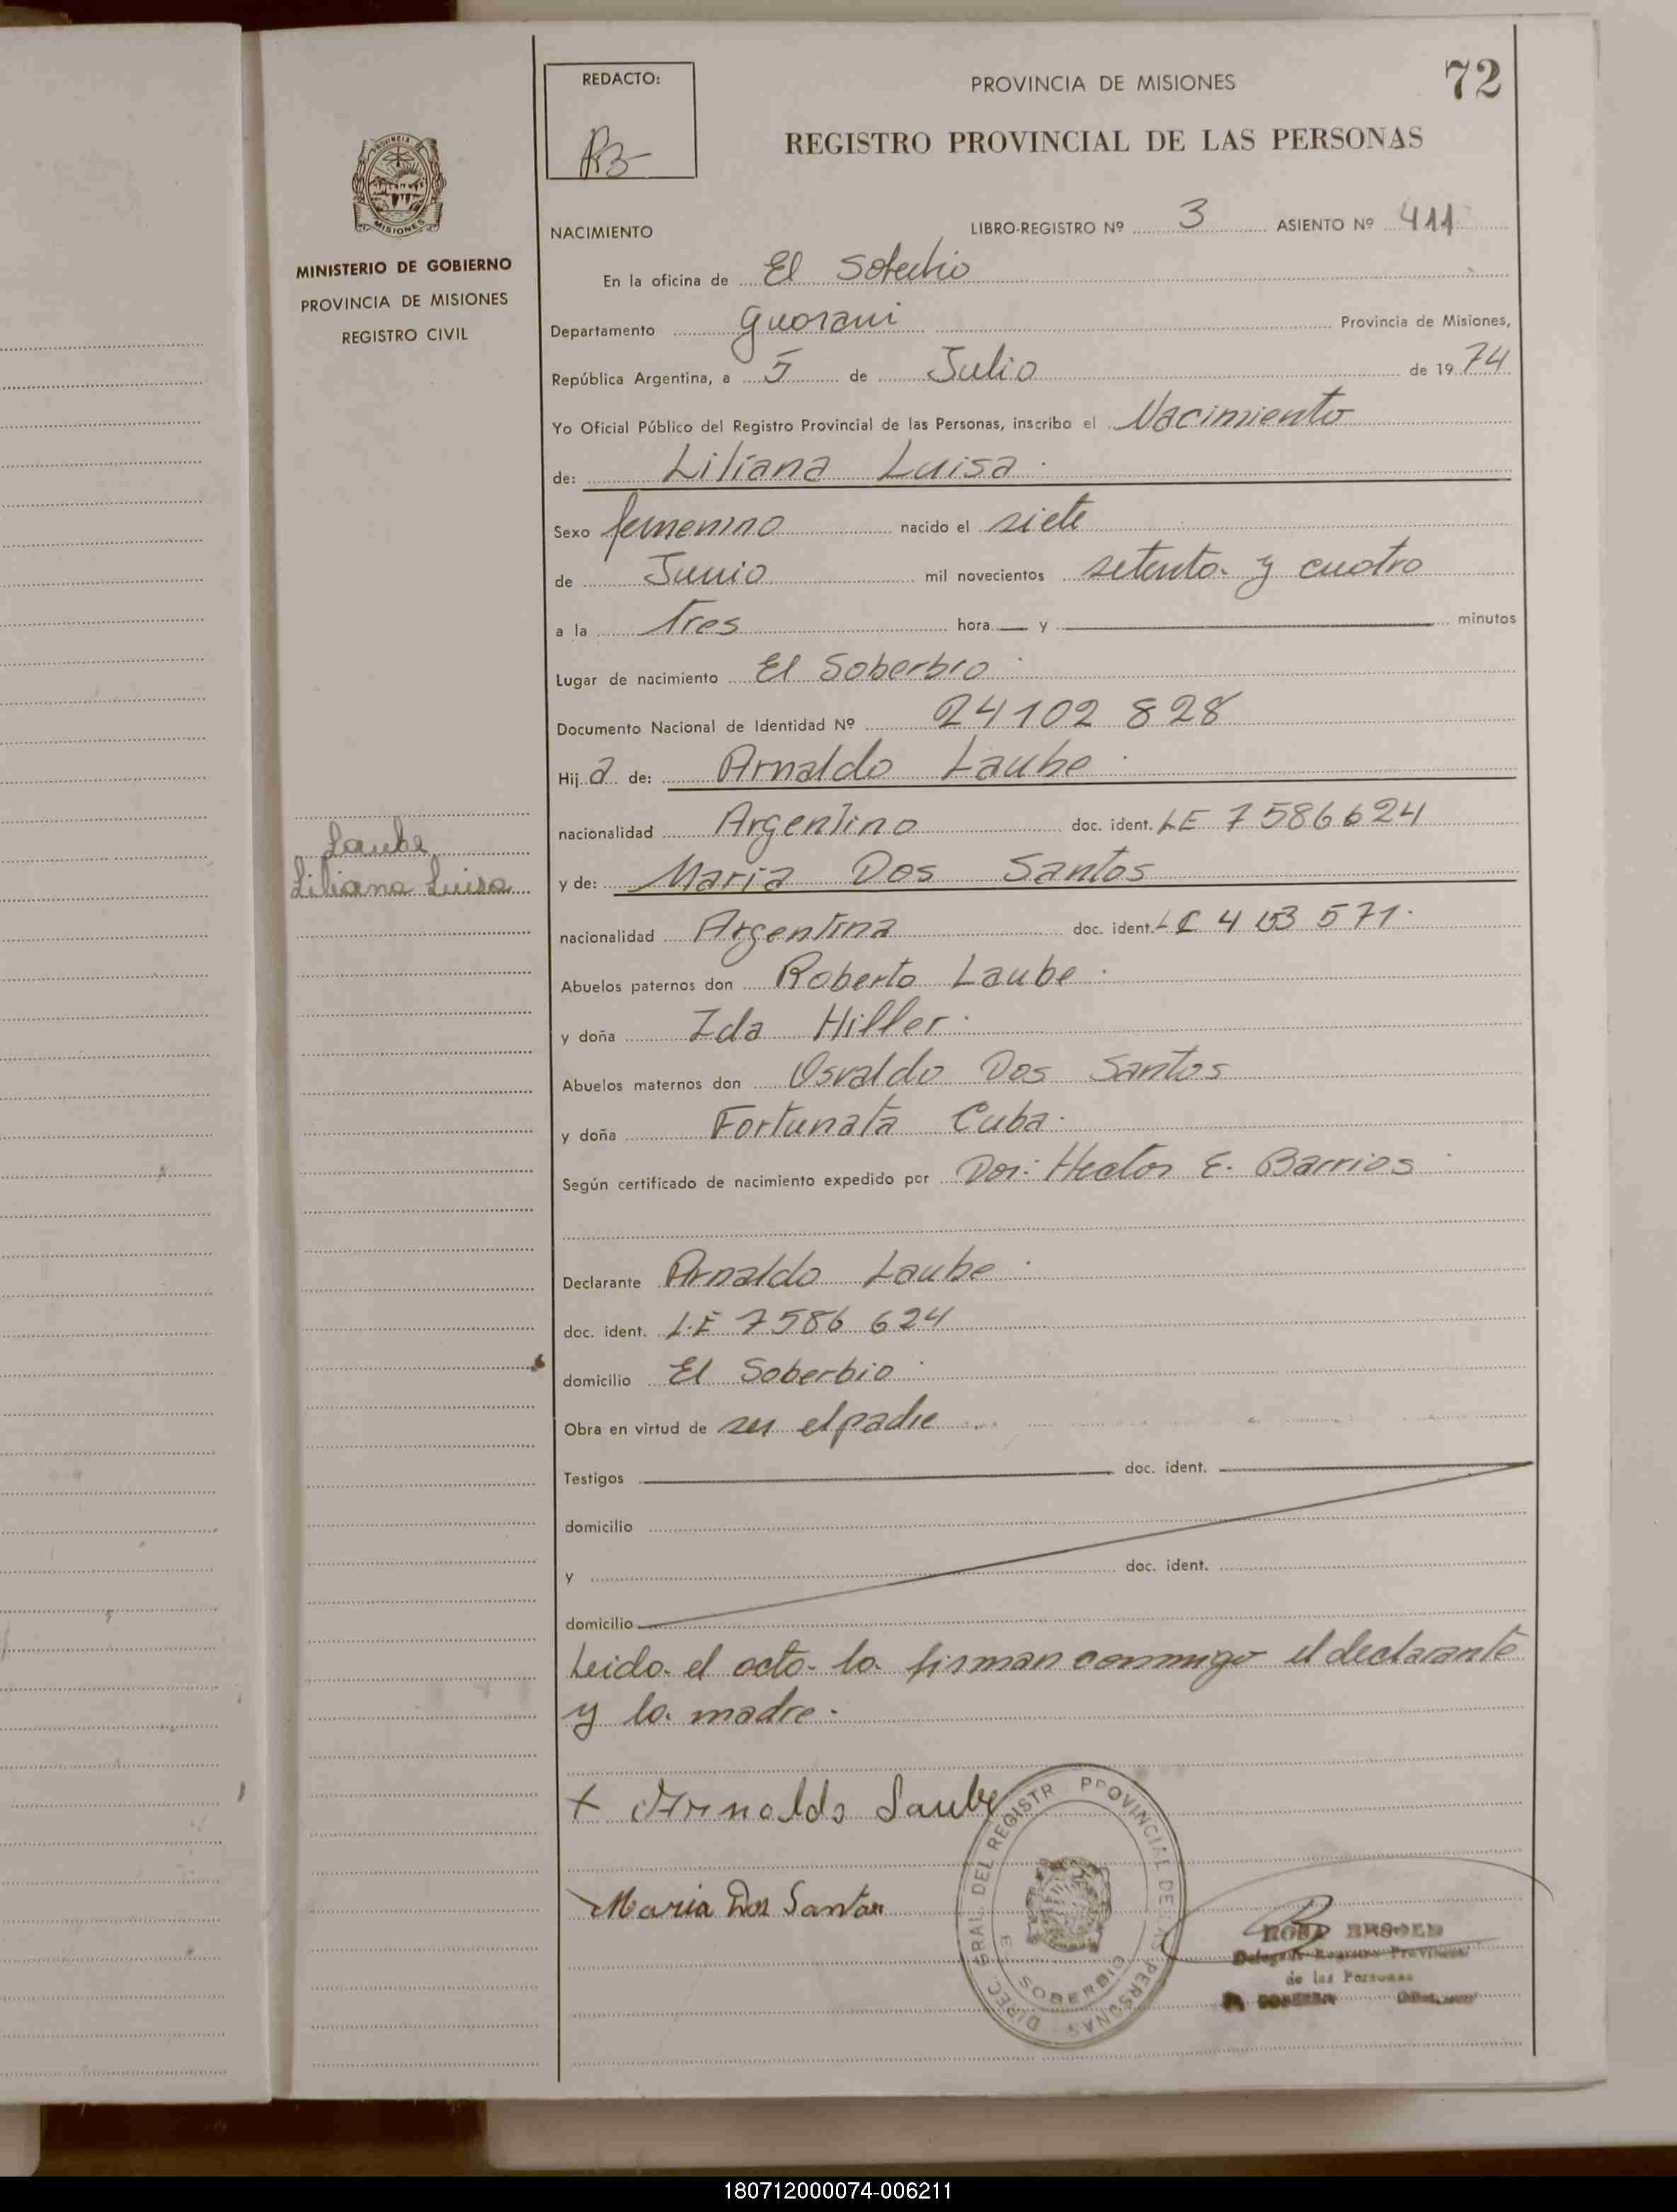 REDACTO:
RB
PROVINCIA DE MISIONES
72
REGISTRO PROVINCIAL DE LAS PERSONAS
MISIONES
MINISTERIO DE GOBIERNO
PROVINCIA DE MISIONES
REGISTRO CIVIL
NACIMIENTO LIBRO-REGISTRO Nº 3 ASIENTO Nº 411
En la oficina de El Soberbio
Departamento Guarani Provincia de Misiones,
República Argentina, a 5 de Julio de 1974
Yo Oficial Público del Registro Provincial de las Personas, inscribo el Nacimiento
de: Liliana Luisa
Sexo femenino nacido el siete
de Junio mil novecientos setenta y cuatro
a la tres hora y minutos
Lugar de nacimiento El Soberbio
Documento Nacional de Identidad Nº 24102 828
Hija de: Arnaldo Laube
nacionalidad Argentino doc. ident. LE 7586624
Laube
Liliana Luisa
y de: Maria Dos Santos
nacionalidad Argentina doc. ident. LC 4 153 571
Abuelos paternos don Roberto Laube
y doña Ida Hiller
Abuelos maternos don Osvaldo Dos Santos
y doña Fortunata Cuba
Según certificado de nacimiento expedido por Dor: Hector E. Barrios
Declarante Arnaldo Laube
doc. ident. L.E 7586 624
domicilio El Soberbio
Obra en virtud de ser el padre
Testigos doc. ident.
domicilio
y doc. ident.
domicilio
Leido el acto lo firman conmigo el declarante
y la madre.
+ Arnoldo Laube
Maria Dos Santos
DIREC GRAL DEL REGISTR PROVINCIAL DE LAS PERSONAS
SOBERBIO
ROSA
Delegada Registro Provincial
de las Personas
180712000074-006211